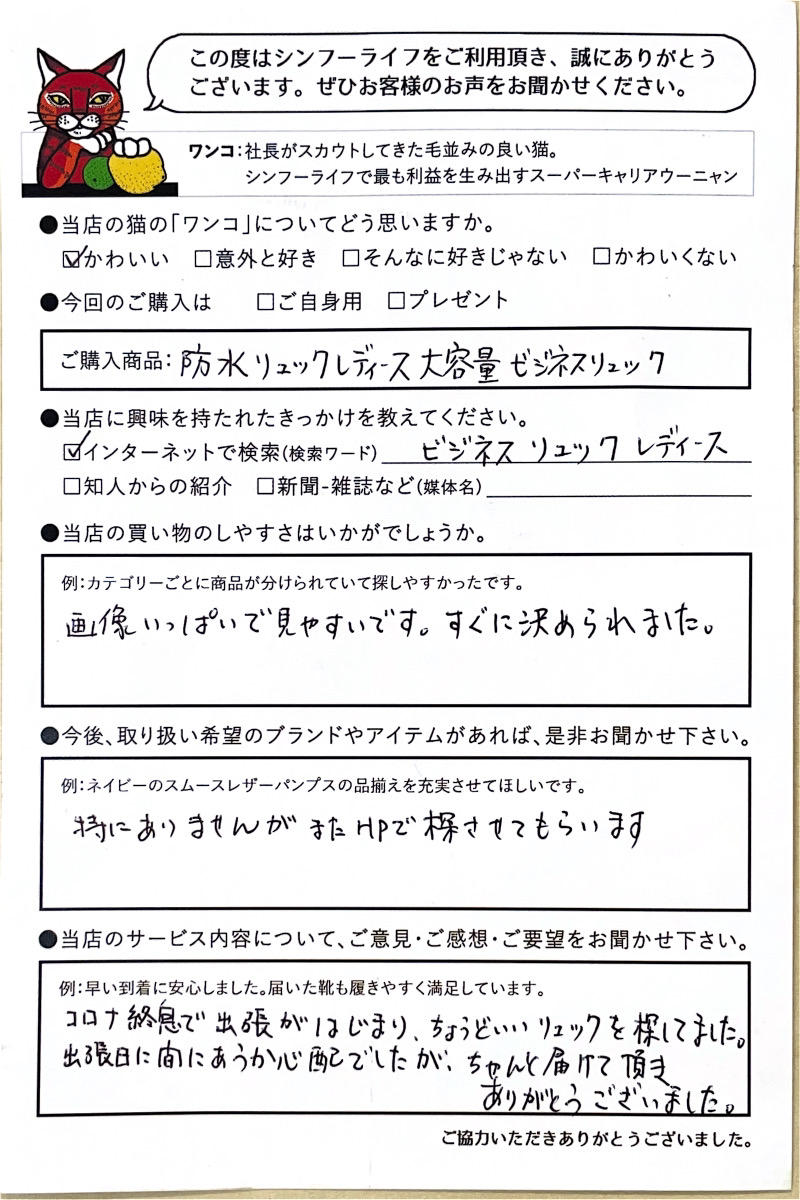 この度はシンフーライフをご利用頂き、誠にありがとう
ございます。ぜひお客様のお声をお聞かせください。
ワンコ：社長がスカウトしてきた毛並みの良い猫。
シンフーライフで最も利益を生み出すスーパーキャリアウーニャン
●当店の猫の「ワンコ」についてどう思いますか。
☑かわいい □意外と好き □そんなに好きじゃない □かわいくない
●今回のご購入は □ご自身用 □プレゼント
ご購入商品：防水リュックレディース大容量ビジネスリュック
●当店に興味を持たれたきっかけを教えてください。
☑インターネットで検索(検索ワード) ビジネス リュック レディース
□知人からの紹介 □新聞-雑誌など(媒体名)
●当店の買い物のしやすさはいかがでしょうか。
例：カテゴリーごとに商品が分けられていて探しやすかったです。
画像いっぱいで見やすいです。すぐに決められました。
●今後、取り扱い希望のブランドやアイテムがあれば、是非お聞かせ下さい。
例：ネイビーのスムースレザーパンプスの品揃えを充実させてほしいです。
特にありませんが またHPで探させてもらいます
●当店のサービス内容について、ご意見・ご感想・ご要望をお聞かせ下さい。
例：早い到着に安心しました。届いた靴も履きやすく満足しています。
コロナ終息で出張がはじまり、ちょうどいいリュックを探してました。
出張日に間にあうか心配でしたが、ちゃんと届けて頂き
ありがとうございました。
ご協力いただきありがとうございました。